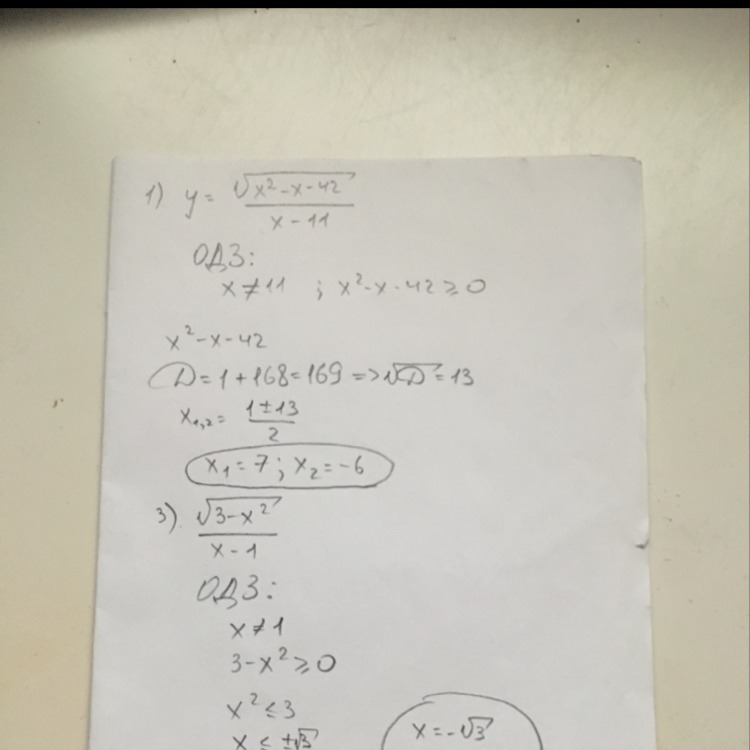 1) y = √(x²-x-42) / (x-11)
ОДЗ:
x≠11 ; x²-x-42≥0
x²-x-42
D=1+168=169 => √D=13
x₁,₂= (1±13)/2
x₁=7 ; x₂=-6
3) √(3-x²) / (x-1)
ОДЗ:
x≠1
3-x²≥0
x²≤3
x≤±√3
x=-√3